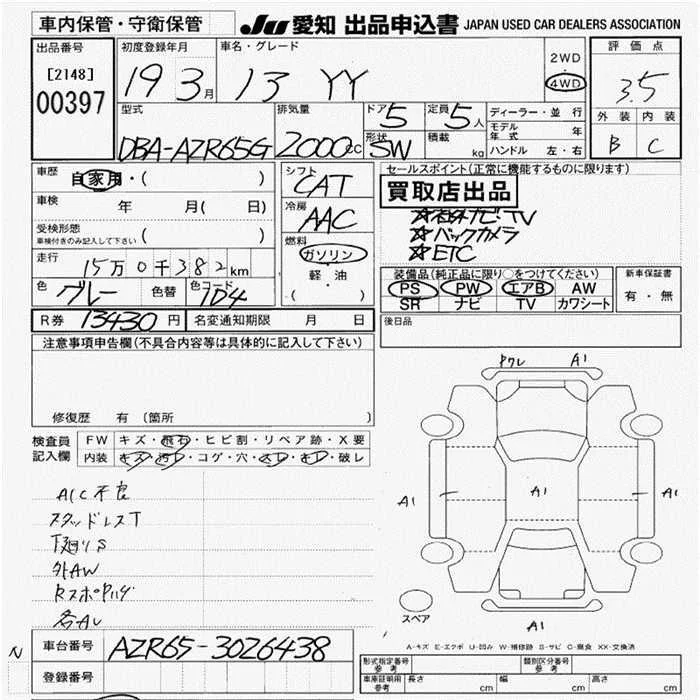 車内保管・守衛保管
JU 愛知 出品申込書 JAPAN USED CAR DEALERS ASSOCIATION
出品番号 初度登録年月 車名・グレード 2WD ・ 4WD 評価点
[2148]
00397
19 3月 13 YY 3.5
外装 内装
B C
型式 排気量 ドア 5 定員 5人 ディーラー・並行
DBA-AZR65G 2000cc 形状 SW 積載 kg モデル年式 年
ハンドル 左・右
車歴 自家用・( )
シフト CAT
セールスポイント(正常に機能するものに限ります)
買取店出品
☆社外ナビTV
☆バックカメラ
☆ETC
車検 年 月( 日)
冷房 AAC
受検形態
車検付きのみ記入して下さい ( )
燃料
ガソリン
軽・油
・
( )
走行 15万0千382km
色 グレー 色替 色コード 1D4
装備品(純正品に限り○をつけてください) 新車保証書
PS PW エアB AW 有・無
SR ナビ TV カワシート
R券 13430円 名変通知期限 月 日
後日品
注意事項申告欄(不具合内容等は具体的に記入して下さい)
修復歴 有 (箇所
検査員記入欄
FW キズ・飛石・ヒビ割・リペア跡・X要
内装 キズ・汚レ・コゲ・穴・スレ・キレ・破レ
A/C不良
スタッドレスT
下廻りS
外AW
各AU
ワレ A1
A1 A1 A1
スペア
A1
N
車台番号 AZR65-3026438
登録番号
A-キズ E-エクボ U-凹み W-補修跡 S-サビ C-腐食 XX-交換済
形式指定番号 参考 類別区分番号 参考
車庫証明用 参考 長さ cm 幅 cm 高さ cm